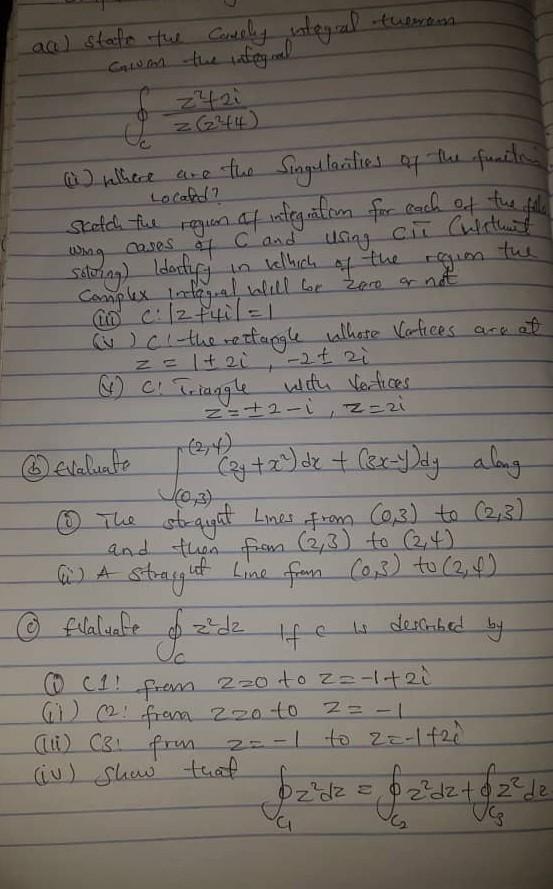 a(i) State the Cauchy integral theorem
Given the integral
∮_C (z²+2i) / (z(z²+4))
(ii) Where are the Singularities of the function
Located?
Sketch the region of integration for each of the follo
wing cases of C and using C ii (without
solving) Identify in which of the region the
Complex integral will be zero or not
(iii) C: |z+4i| = 1
(iv) C: the rectangle whose Vertices are at
z = 1 ± 2i, -2 ± 2i
(v) C: Triangle with Vertices
z = ±2-i, z = 2i
(b) Evaluate ∫_(0,3)^(2,4) (2y+x²)dx + (3x-y)dy along
(i) The straight Lines from (0,3) to (2,3)
and then from (2,3) to (2,4)
(ii) A straigut Line from (0,3) to (2,4)
(c) Evaluate ∮_C z²dz If C is described by
(i) C1: from z=0 to z=-1+2i
(ii) C2: from z=0 to z=-1
(iii) C3: from z=-1 to z=-1+2i
(iv) Show that
∮_C1 z²dz = ∮_C2 z²dz + ∮_C3 z²dz